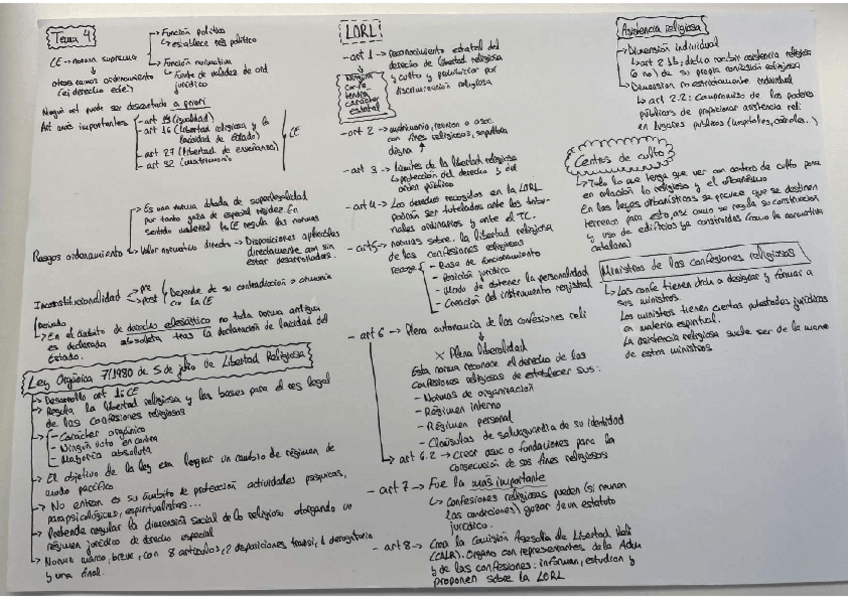 Tema 4
CE → norma suprema
otras ramas ordenamiento
(ej derecho ecle)
→ Función política
↳ establece rég político
→ Función normativa
↳ Fuente de validez de ord
jurídico
Ningún art puede ser descartado a priori
Art más importantes
- art 14 (igualdad)
- art 16 (libertad religiosa y la
laicidad de Estado)
- art 27 (libertad de enseñanza)
- art 32 (matrimonio)
CE
Rasgos ordenamiento
→ Es una norma dotada de superlegalidad
por tanto goza de especial rigidez. En
sentido material la CE regula las normas
→ Valor normativo directo → Disposiciones aplicables
directamente aun sin
estar desarrolladas.
Inconstitucionalidad
→ pre
→ post
Depende de su contradicción o armonía
con la CE
Derivado
↳ En el ámbito de derecho eclesiástico no toda norma antigua
es declarada obsoleta tras la declaración de laicidad del
Estado.
Ley Orgánica 7/1980 de 5 de julio de Libertad Religiosa
→ Desarrolla art 16 CE
→ Regula la libertad religiosa y las bases para el reg legal
de las confesiones religiosas
- Carácter orgánico
- Ningún voto en contra
- Mayoría absoluta
→ El objetivo de la ley era lograr un cambio de régimen de
modo pacífico
→ No entran en su ámbito de protección actividades psíquicas,
parapsicológicas, espiritualistas...
→ Pretende regular la dimensión social de lo religioso otorgando un
régimen jurídico de derecho especial
→ Norma marco, breve, con 8 artículos, 2 disposiciones transi, 1 derogatoria
y una final.
LORL
- art 1 → reconocimiento estatal del
derecho de libertad religiosa
y culto y prohibición por
discriminación religiosa
Ninguna
confe
tendrá
carácter
estatal
- art 2 → matrimonio, reunión o asoc
con fines religiosos, sepultura
digna
- art 3 → límites de la libertad religiosa
↳ protección del derecho y del
orden público
- art 4 → Los derechos recogidos en la LORL
podrán ser tutelados ante los tribu-
nales ordinarios y ante el TC.
- art 5 → normas sobre la libertad religiosa
de las confesiones religiosas
recoge
- Base de funcionamiento
- Posición jurídica
- Modo de obtener la personalidad
- Creación del instrumento registral
- art 6 → Plena autonomía de las confesiones reli
X Plena liberalidad
Esta norma reconoce el derecho de las
confesiones religiosas de establecer sus:
- Normas de organización
- Régimen interno
- Régimen personal
- Cláusulas de salvaguardia de su identidad
→ art 6.2 → Crear asoc o fundaciones para la
consecución de sus fines religiosos
- art 7 → Fue la más importante
↳ confesiones religiosas pueden (si reúnen
las condiciones) gozar de un estatuto
jurídico.
- art 8 → Crea la Comisión Asesora de Libertad Reli
(CALR). Órgano con representantes de la Adm
y de las confesiones: informan, estudian y
proponen sobre la LORL
Asistencia religiosa
→ Dimensión individual
↳ art 2.1b; dcho a recibir asistencia religiosa
(o no) de su propia confesión religiosa
→ Dimensión no estrictamente individual
↳ art 2.2: Compromiso de los poderes
públicos de proporcionar asistencia reli
en lugares públicos (hospitales, cárceles..)
Centros de culto
↳ Todo lo que tenga que ver con centros de culto pone
en relación lo religioso y el urbanístico
En las leyes urbanísticas se prevee que se destinen
terrenos para esto, así como se regula su construcción
y uso de edificios ya construidos (como la normativa
catalana)
Ministros de las confesiones religiosas
↳ Las confe tienen dcho a designar y formar a
sus ministros.
Los ministros tienen ciertas potestades jurídicas
en materia espiritual.
La asistencia religiosa suele ser de la mano
de estos ministros